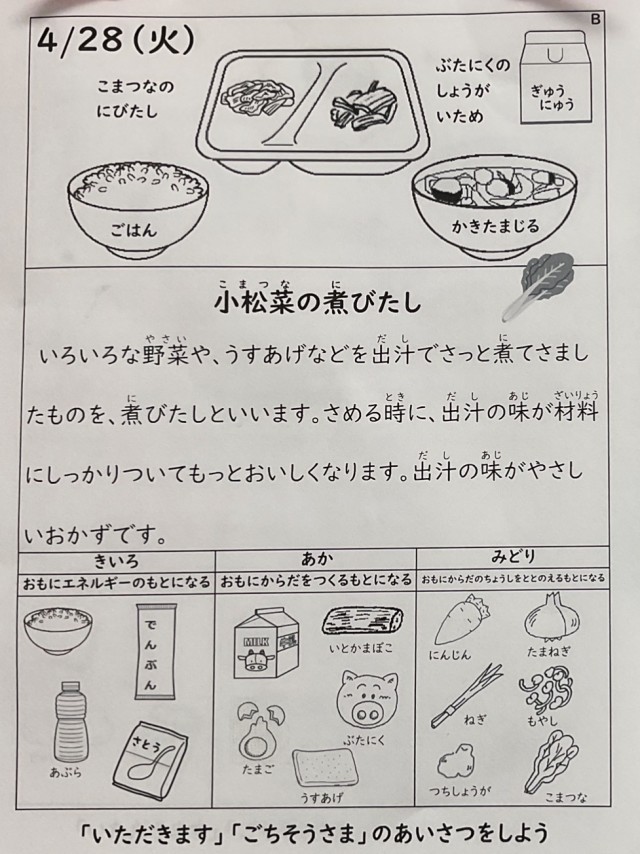 B
4/28(火)
こまつなの
にびたし
ぶたにくの
しょうが
いため
ぎゅう
にゅう
ごはん
かきたまじる
こまつな に
小松菜の煮びたし
やさい だし に
いろいろな野菜や、うすあげなどを出汁でさっと煮てさまし
に とき だし あじ ざいりょう
たものを、煮びたしといいます。さめる時に、出汁の味が材料
だし あじ
にしっかりついてもっとおいしくなります。出汁の味がやさし
いおかずです。
きいろ
おもにエネルギーのもとになる
でんぷん
あぶら
さとう
あか
おもにからだをつくるもとになる
MILK
いとかまぼこ
ぶたにく
たまご
うすあげ
みどり
おもにからだのちょうしをととのえるもとになる
にんじん
たまねぎ
ねぎ
もやし
つちしょうが
こまつな
「いただきます」「ごちそうさま」のあいさつをしよう